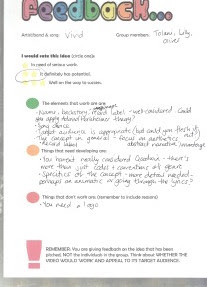 Feedback...
Artist/Band & song: Vivid
Group members: Tolani, Lily,
Oliver
I would rate this idea (circle one):
In need of serious work.
It definitely has potential.
Well on the way to success.
The elements that work are
- Name, backstory, record label - well considered. Could
you apply
theory?
- Song choice
- Target audience is appropriate (but could you flesh it
- The concept in general - focus on aesthetics
- Record label
abstract narrative / montage
Things that need developing are
- You haven't really considered Goodwin - there's
more than just codes & conventions of genre
- Specifics of the concept - more detail needed -
perhaps an animatic or going through the lyrics?
Things that don't work (remember to include reasons)
- You need a logo
REMEMBER: You are giving feedback on the idea that has been
pitched, NOT the individuals in the group. Think about WHETHER THE
VIDEO WOULD WORK AND APPEAL TO ITS TARGET AUDIENCE.